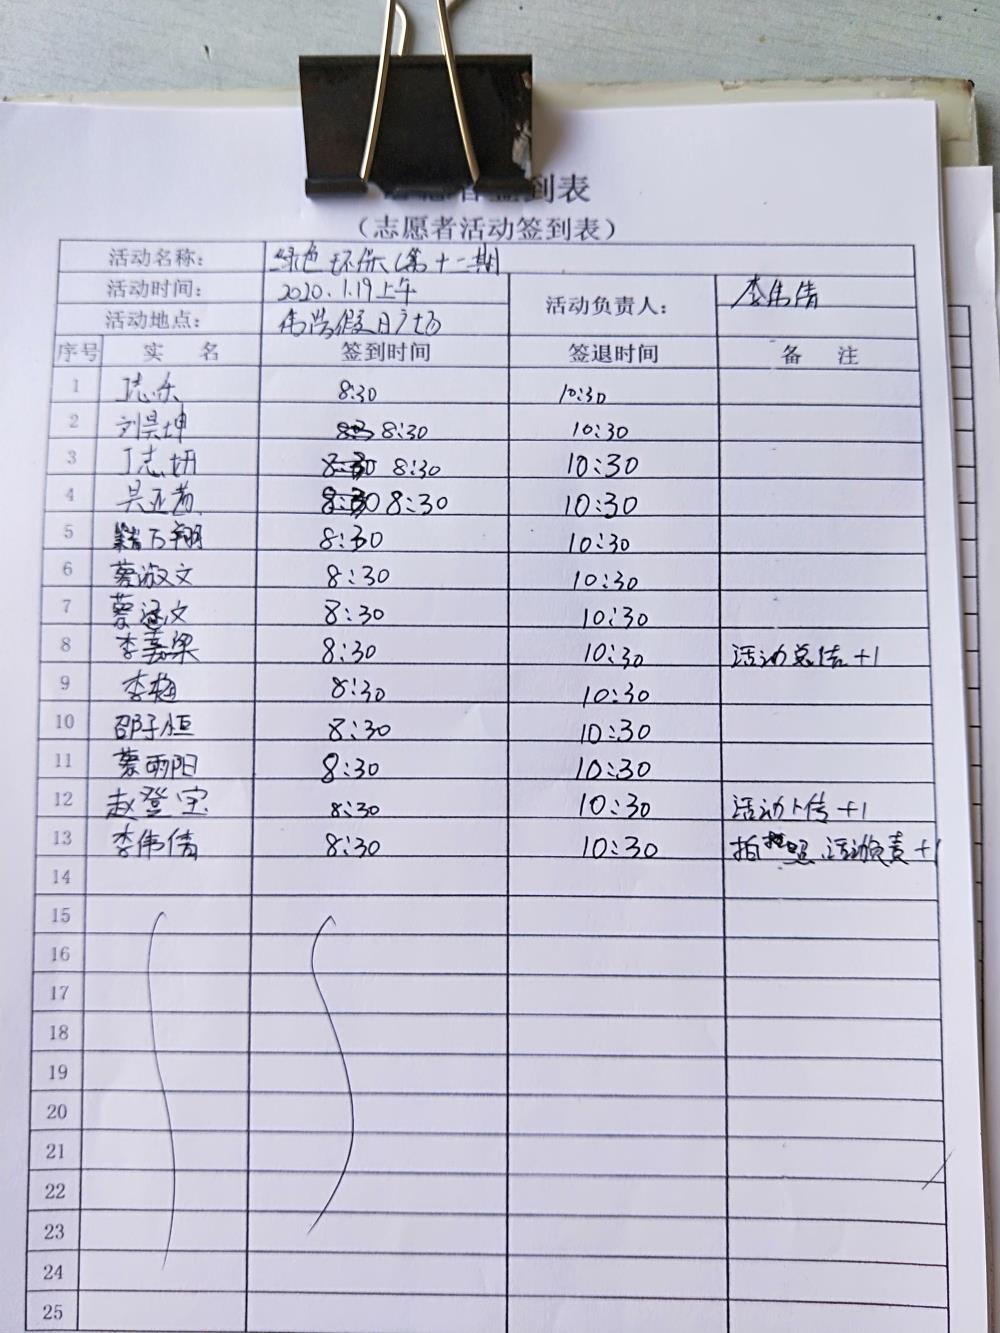 签到表
（志愿者活动签到表）
活动名称： 绿色环保（第十一期
活动时间： 2020.1.19上午
活动负责人： 李伟倩
活动地点： 假日广场
序号 实 名 签到时间 签退时间 备 注
1 丁志乐 8:30 10:30
2 刘昊坤 8:30 10:30
3 丁志妍 8:30 10:30
4 吴亚茹 8:30 10:30
5 万翔 8:30 10:30
6 蔡淑文 8:30 10:30
7 蔡涵文 8:30 10:30
8 李嘉梁 8:30 10:30 活动总结+1
9 李梅 8:30 10:30
10 邵子恒 8:30 10:30
11 蔡雨阳 8:30 10:30
12 赵登宝 8:30 10:30 活动上传+1
13 李伟倩 8:30 10:30 拍照.活动负责+1
14
15
16
17
18
19
20
21
22
23
24
25